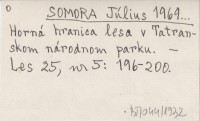 0
SOMORA Július 1969...
Horná hranica lesa v Tatran-
skom národnom parku. —
Les 25, nr 5: 196-200.